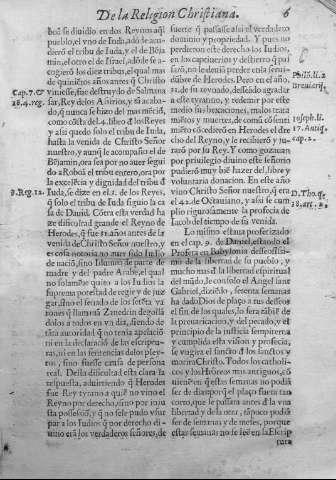 De la Religion Christiana. 6
boã se diuidio en dos Reynos aql
pueblo, el vno de Iuda, adõ de acu-
dierõ el tribu de Iuda, y el de Bēja
min, el otro el de Israel, adõ de se a-
cogierõ los diez tribus, el qual mas
de quinientos años antes q̃ Christo
viniesse, fue destruydo de Salmana
sar, Rey delos Assirios, y tã acaba-
do, q̃ nunca se hizo del mas menciõ,
como cõsta del 4. libro d̃ los Reyes
y asi quedo solo el tribu de Iuda,
hasta la venida de Christo Señor
nuestro, y aunq̃ le acompañò el de
Bējamin, ora sea por no auer segui
do a Roboã el tribu entero, ora por
la excelēcia y dignidad del tribu d̃
Iuda, se dize en el 2. de los Reyes,
q̃ solo el tribu de Iuda siguio la ca
sa de Dauid. Cõtra esta verdad ha
ze dificultad grande el Reyno de
Herodes, q̃ fue 31. años antes de la
venida de Christo Señor nuestro, y
es cosa notoria no auer sido Iudio
de naciõ, sino Idumeo de parte de
madre y del padre Arabe, el qual
no solamēte quito a los Iudios la
suprema potestad de regir y de juz
gar, sino el senado de los setēta va
rones q̃ llamauã Zanedrin degollã
dolos a todos en vn dia, siendo de
tãta autoridad q̃ no tenia apelaciõ
ni en la declaraciõ de las escriptu-
ras, ni en las sentencias delos pley-
tos, sino fuesse causa de persona
real. Desta dificultad esta clara la
respuesta, aduirtiendo q̃ Herodes
fue Rey tyrano a quiē no vino el
Reyno por derecho, sino por inju
sta possessiõ, y q̃ no se le pudo vsur
par a los Iudios q̃ por derecho di-
uino erã los verdaderos señores, de
Cap. 7. &
18. 4. reg.
3. Reg. 12.
suerte q̃ passasse en el verdadero
dominio y propriedad. Y pues no
perdieron este derecho los Iudios,
en los captiuerios y destierro q̃ pas
sarõ, ne le deuiã perder enla serui-
dũbre de Herodes. Pero en el año,
31. de su reynado, desseãdo agradar
a este tyranno, y redemir por este
modio sus bexaciones, malos trata
miētos y muertes, de comũ cõsenti
miēto cõcedierõ en Herodes el dre
cho del Reyno, y le recibierõ y ju-
rarõ por su Rey. Y como gozauan
por priuilegio diuino este señorio
pudierõ muy biē hazer del, libre y
voluntaria donacion. En este año
vino Christo Señor nuestro, q̃ era
el 42. de Octauiano, y asi se cum
plio rigurosamente la profecia de
Iacob del tiempo de su venida.
Lo mismo estaua profetizado
en el cap. 9. de Daniel, estando el
Profeta en Babylonia desseosissi-
mo de la libertad de su pueblo, y
mucho mas d̃ la libertad espiritual
del mũdo, le consolo el Angel san
Gabriel, diziēdo, setenta semanas
ha dado Dios de plaço a tus desseos
el fin de los quales, lo sera tãbiē de
la preuaricacion, y del pecado, y el
principio de la justicia sempiterna
y cumplida esta vision y profecia,
se vngira el sancto d̃ los sanctos y
morira Christo. Todos los catholi-
cos y los Hebreos mas antiguos, cõ
uienē en q̃ estas semanas no podiã
ser de dias por q̃ el plaço fuera tan
corto, que se passara antes d̃ la vna
libertad y dela otra, tãpoco podiã
ser de semanas y de meses, porque
estas semanas no se leē en la Escrip
tura
Phili. li. 2
breuiarij.
Ioseph. li.
17. Antiq.
cap. 2.
D. Tho. q.